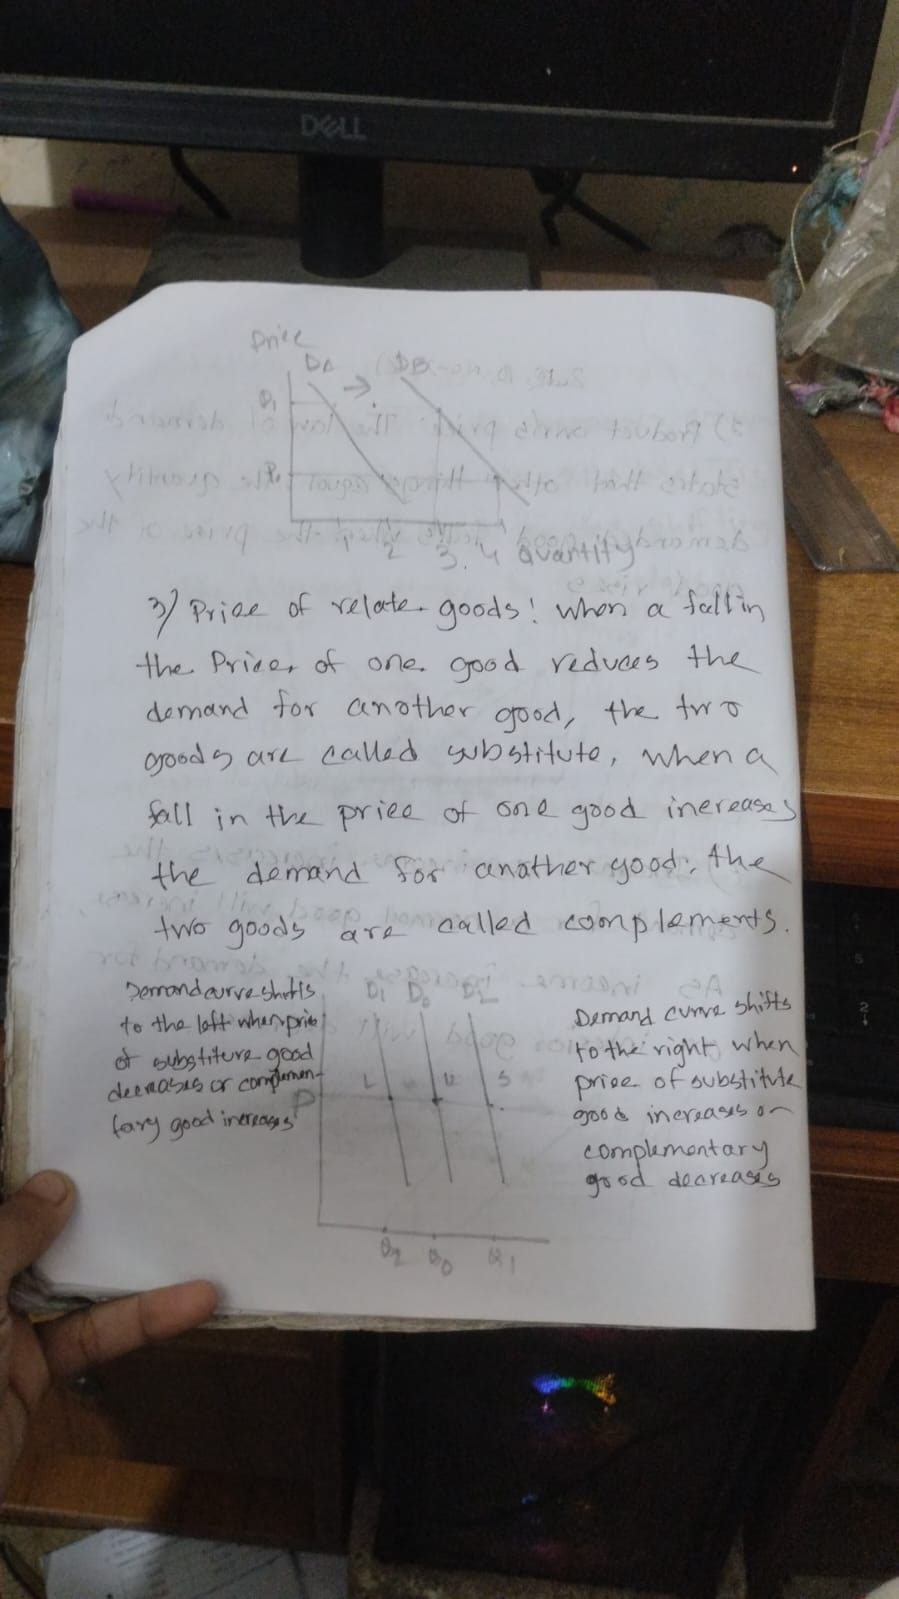 DELL
Price
DA DB
P1
2 3 4 Quantity
3) Price of relate goods! When a fall in
the Price, of one good reduces the
demand for another good, the two
goods are called substitute, when a
fall in the price of one good increases
the demand for anather good, the
two goods are called complements.
Demand curve shifts
to the left when price
of substiture good
decreases or complemen-
tary good increases
D1 D0 D2
L U S
P
Q2 Q0 Q1
Demand curve shifts
to the right when
price of substitute
good increases or
complementary
good decreases